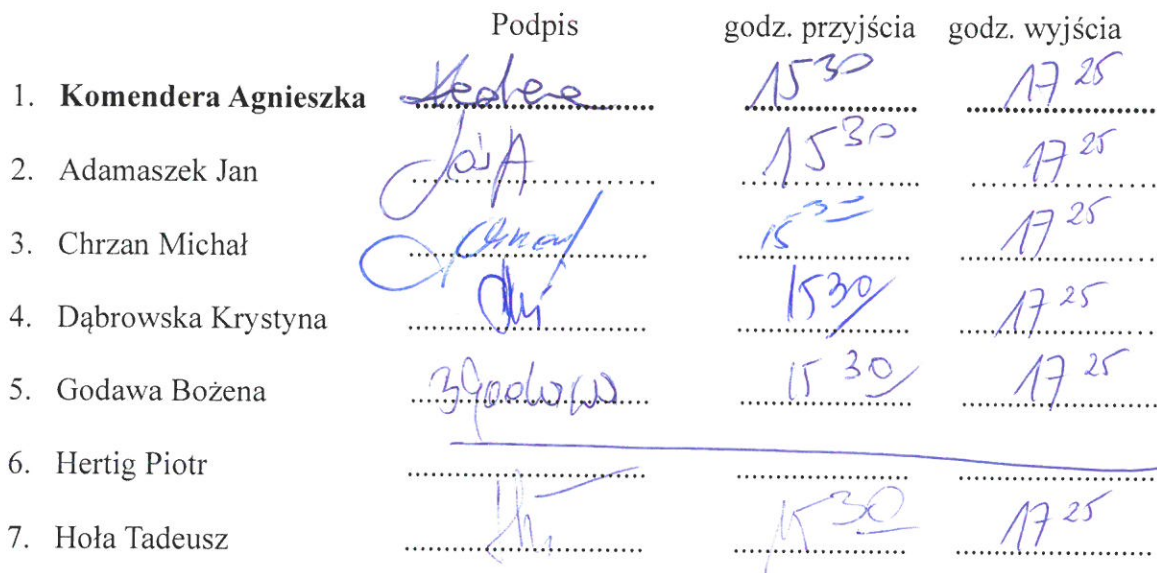 Podpis godz. przyjścia godz. wyjścia
1. Komendera Agnieszka 15 30 17 25
2. Adamaszek Jan 15 30 17 25
3. Chrzan Michał 15 30 17 25
4. Dąbrowska Krystyna 15 30 17 25
5. Godawa Bożena BGodawa 15 30 17 25
6. Hertig Piotr
7. Hoła Tadeusz 15 30 17 25